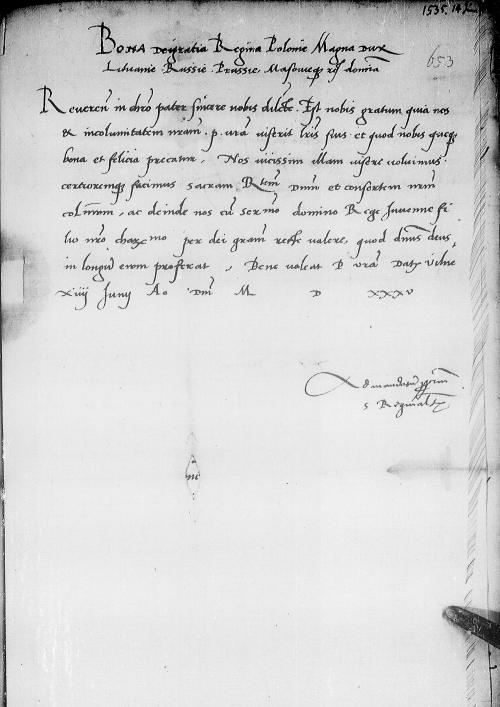 1535. 14 Jun
653
Bona Dei gratia Regina Polonie Magna Dux
Lituanie Russie Prussie, Masovieqȝ rȝ domina
Reveren̄ in chro pater sincere nobis dilecte. Est nobis gratum quia nos
et incolumitatem nram̄. p. vrā viserit lris suis et quod nobis queqȝ
bona et felicia precatur, Nos vicissim illam visere voluimus.
certioremqȝ facimus sacram Rtem̄ Dnm̄ et consortem nrm̄
col, ac deinde nos cū ser mo domino Rege Juvene fi
lio nro char mo per dei gram̄ recte valere, quod dnus deus
in longū evum proferat, Bene valeat P vrā Datȝ Vilne
xiiij Junij Ao Dnj M D xxxv
Ad mandatū
s Reginal
mc